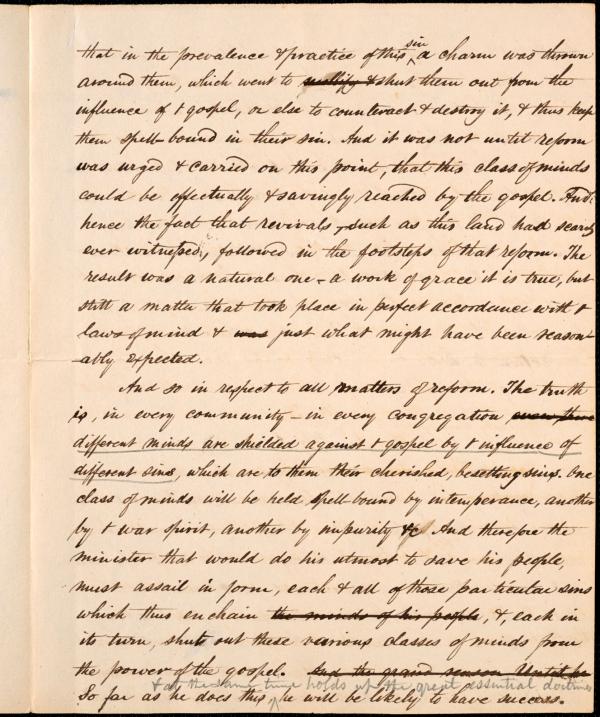 that in the prevalence & practice of this sin a charm was thrown
around them, which went to nullify & shut them out from the
influence of t gospel, or else to counteract & destroy it, & thus keep
them spell-bound in their sin. And it was not until reform
was urged & carried on this point, that this class of minds
could be effectually & savingly reached by the gospel. And
hence the fact that revivals, such as this land had scarcely
ever witnessed, followed in the footsteps of that reform. The
result was a natural one - a work of grace it is true, but
still a matter that took place in perfect accordance with t
laws of mind & was just what might have been reason-
ably expected.
And so in respect to all matters of reform. The truth
is, in every community - in every congregation even there
different minds are shielded against t gospel by t influence of
different sins, which are to them their cherished, besetting sins. One
class of minds will be held spell-bound by intemperance, another
by t war spirit, another by impurity &c And therefore the
minister that would do his utmost to save his people,
must assail in form, each & all of those particular sins
which thus enchain the minds of his people, &, each in
its turn, shut out these various classes of minds from
the power of the gospel. And the grand reason Until he
& at the same time holds up the great essential doctrines
So far as he does this he will be likely to have success.